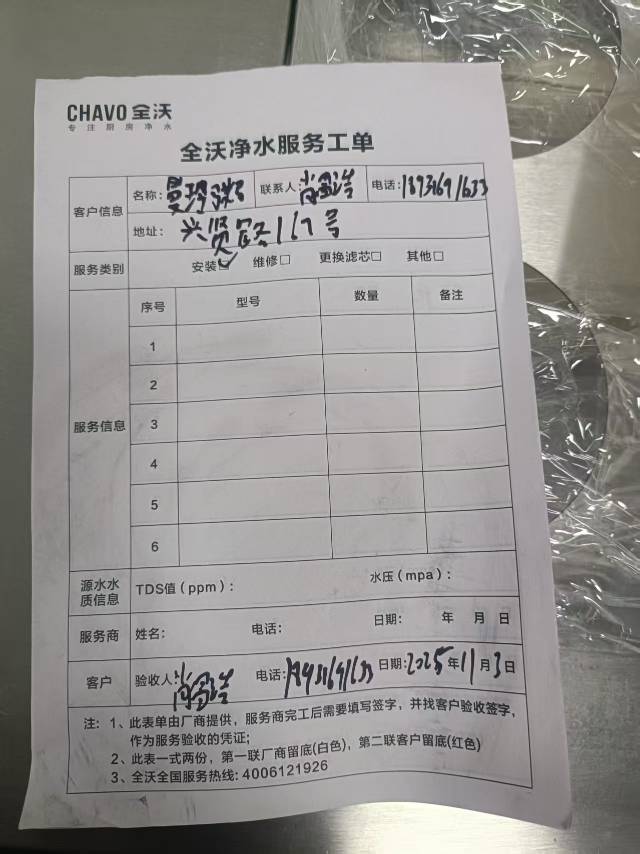 CHAVO 全沃
专注厨房净水
全沃净水服务工单
客户信息 名称: 联系人: 电话:
地址: 兴贤路167号
服务类别 安装☑ 维修□ 更换滤芯□ 其他□
服务信息 序号 型号 数量 备注
1
2
3
4
5
6
源水水质信息 TDS值（ppm）: 水压（mpa）:
服务商 姓名: 电话: 日期: 年 月 日
客户 验收人: 电话: 日期: 2025年11月3日
注: 1、此表单由厂商提供，服务商完工后需要填写签字，并找客户验收签字，
作为服务验收的凭证;
2、此表一式两份，第一联厂商留底(白色)，第二联客户留底(红色)
3、全沃全国服务热线: 4006121926